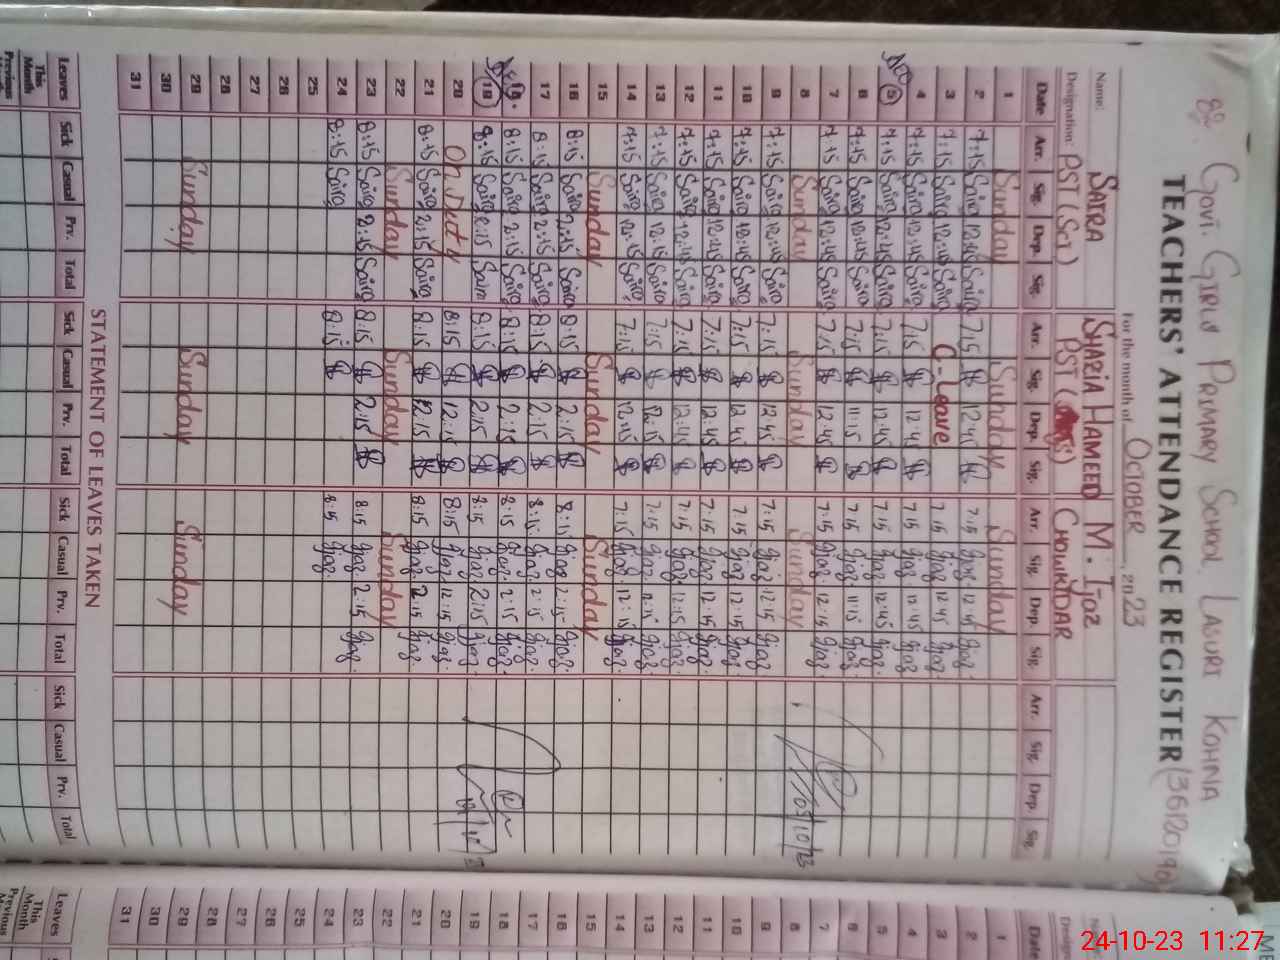 Govt. GIRLS PRIMARY SCHOOL LASURI KOHNA
TEACHERS' ATTENDANCE REGISTER
For the month of OCTOBER 2023
Name: SAIRA SHAZIA HAMEED M. Ijaz
Designation: PST (Sci) PST CHOWKIDAR
Date Arr. Sig. Dep. Sig. Arr. Sig. Dep. Sig. Arr. Sig. Dep. Sig. Arr. Sig. Dep. Sig.
1 Sunday Sunday Sunday
2 7:45 Saira 12:45 Saira 7:15 12:45 7:15 Ijaz 12:45 Ijaz
3 7:45 Saira 12:45 Saira C-Leave 7:15 Ijaz 12:45 Ijaz
4 7:45 Saira 12:45 Saira 7:15 12:45 7:15 Ijaz 12:45 Ijaz
5 7:45 Saira 12:45 Saira 7:15 12:45 7:15 Ijaz 12:45 Ijaz
6 7:45 Saira Saira 7:15 11:15 7:15 Ijaz 11:15 Ijaz
7 7:45 Saira 12:45 Saira 7:15 12:45 7:15 Ijaz 12:15 Ijaz
8 Sunday Sunday Sunday
9 7:45 Saira 12:45 Saira 7:15 12:45 7:15 Ijaz 12:15 Ijaz
10 7:45 Saira 12:45 Saira 7:15 12:45 7:15 Ijaz 12:15 Ijaz
11 7:45 Saira 12:45 Saira 7:15 12:45 7:15 Ijaz 12:15 Ijaz
12 7:45 Saira 12:45 Saira 7:15 12:45 7:15 Ijaz 12:15 Ijaz
13 7:45 Saira 12:15 Saira 7:15 12:15 7:15 Ijaz Ijaz
14 7:45 Saira 12:45 Saira 7:15 12:15 7:15 Ijaz 12:15 Ijaz
15 Sunday Sunday Sunday
16 8:15 Saira 2:15 Saira 8:15 2:15 8:15 Ijaz 2:15 Ijaz
17 8:15 Saira 2:15 Saira 8:15 2:15 8:15 Ijaz 2:15 Ijaz
18 8:15 Saira 2:15 Saira 8:15 2:15 8:15 Ijaz 2:15 Ijaz
19 8:15 Saira 2:15 Saira 8:15 2:15 8:15 Ijaz 2:15 Ijaz
20 On Duty 8:15 12:15 8:15 Ijaz 12:15 Ijaz
21 8:15 Saira 2:15 Saira 8:15 2:15 8:15 Ijaz 2:15 Ijaz
22 Sunday Sunday Sunday
23 8:15 Saira 2:15 Saira 8:15 2:15 8:15 Ijaz 2:15 Ijaz
24 8:15 Saira 8:15 8:15 Ijaz
25
26
27
28
29 Sunday Sunday Sunday
30
31
STATEMENT OF LEAVES TAKEN
Leaves Sick Casual Prv. Total Sick Casual Prv. Total Sick Casual Prv. Total Sick Casual Prv. Total
This Month
Previous
Date
1
2
3
4
5
6
7
8
9
10
11
12
13
14
15
16
17
18
19
20
21
22
23
24
25
26
27
28
29
30
31
Leaves
This Month
Previous
24-10-23 11:27